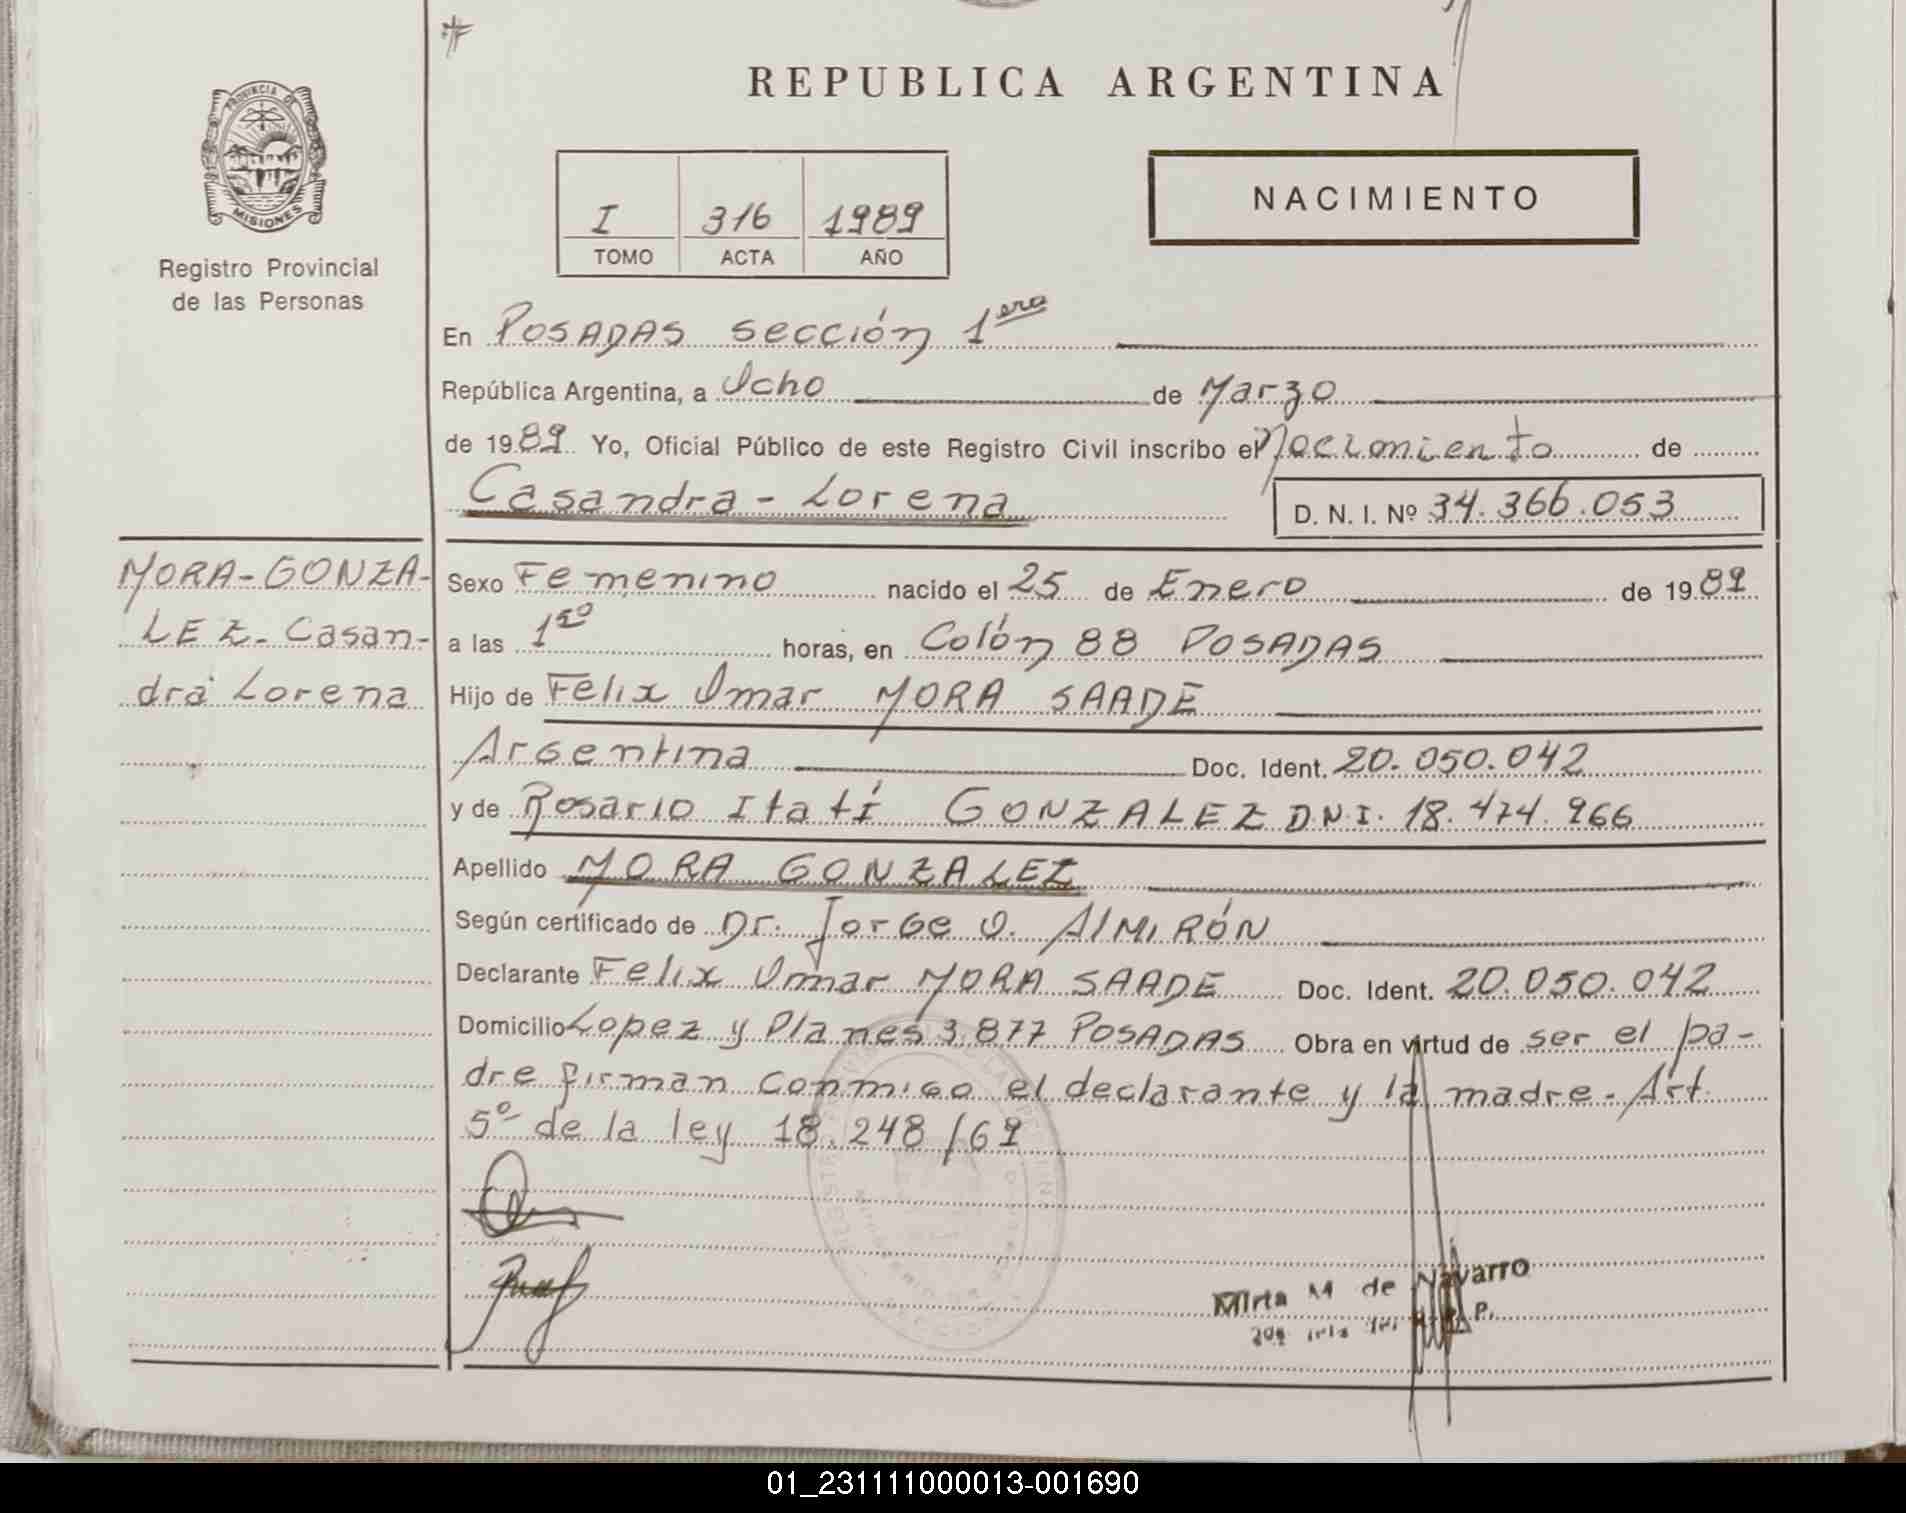 REPUBLICA ARGENTINA
PROVINCIA DE
MISIONES
Registro Provincial
de las Personas
NACIMIENTO
I 316 1989
TOMO ACTA AÑO
En POSADAS sección 1era
República Argentina, a Ocho de Marzo
de 1989 Yo, Oficial Público de este Registro Civil inscribo el Nacimiento de
Casandra - Lorena D. N. I. Nº 34.366.053
MORA-GONZA-
LEZ-Casan-
dra Lorena
Sexo Femenino nacido el 25 de Enero de 1989
a las 1 50 horas, en Colón 88 POSADAS
Hijo de Felix Omar MORA SAADE
Argentina Doc. Ident. 20.050.042
y de Rosario Itatí GONZALEZ D.N.I. 18.474.966
Apellido MORA GONZALEZ
Según certificado de Dr. Jorge O. AlMIRÓN
Declarante Felix Omar MORA SAADE Doc. Ident. 20.050.042
Domicilio Lopez y Planes 3.877 POSADAS Obra en virtud de ser el pa-
dre firman conmigo el declarante y la madre. Art.
5º de la ley 18.248/69
Mirta M de Navarro
01_231111000013-001690